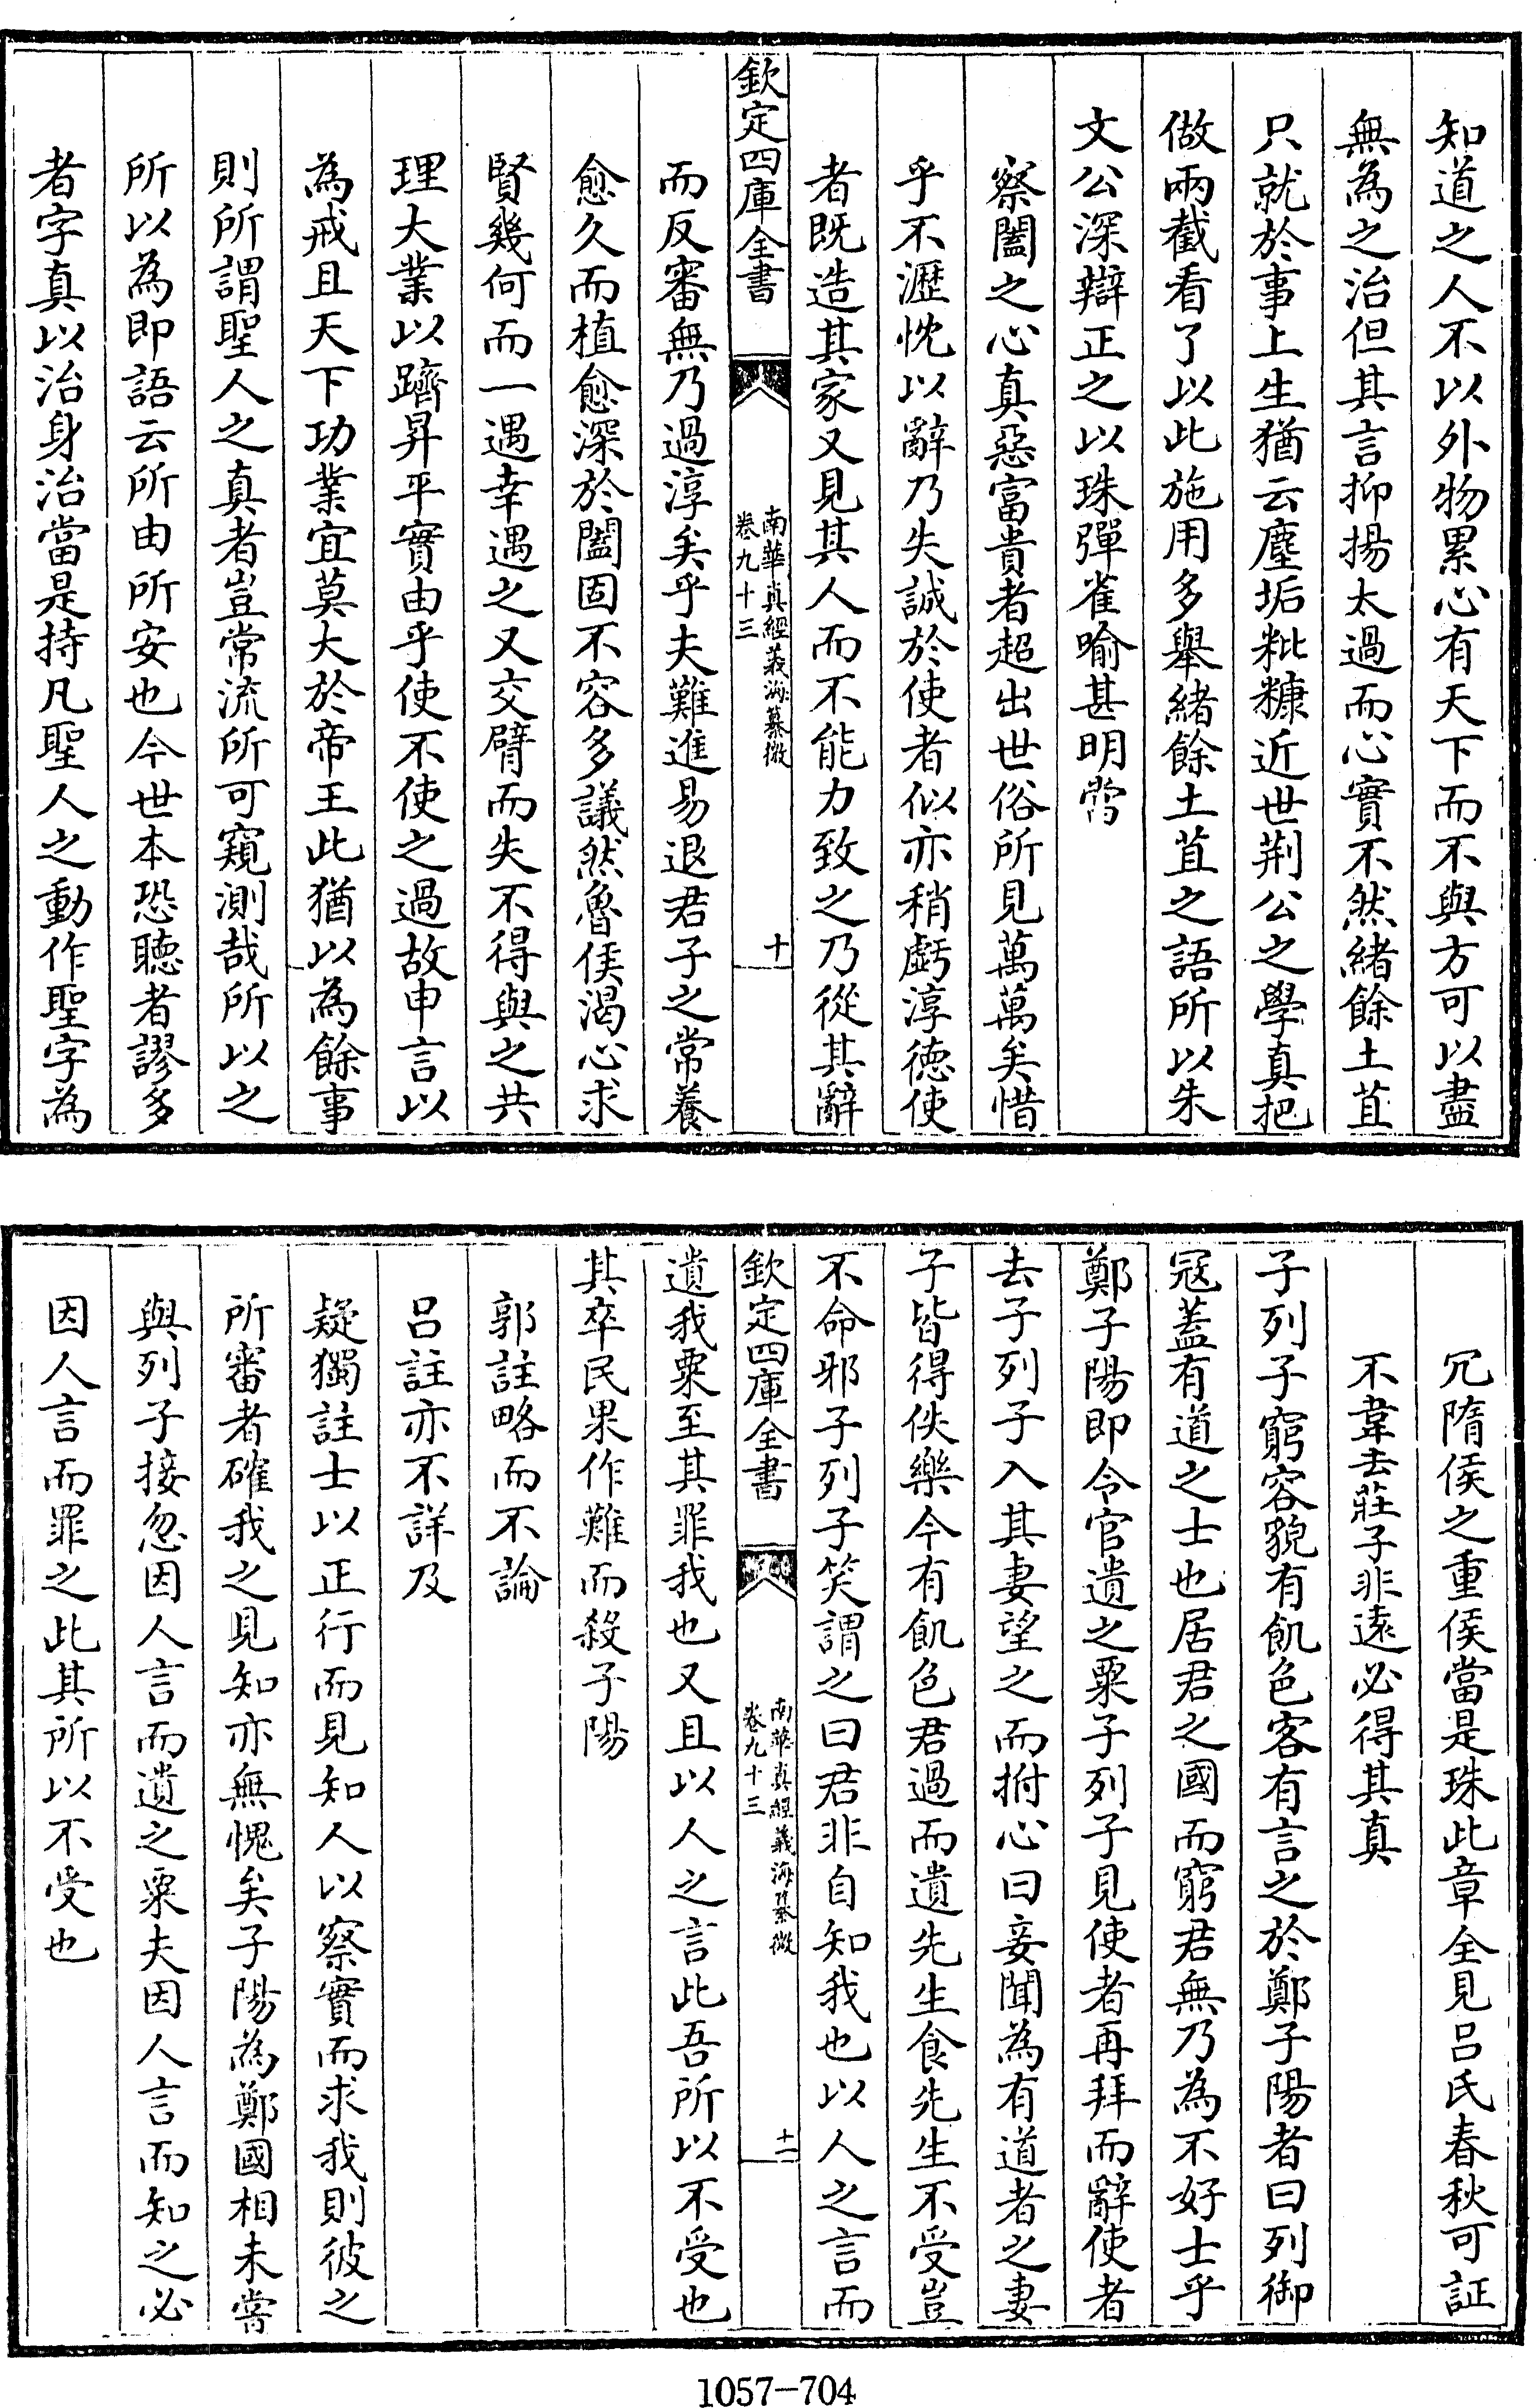 知道之人不以外物累心有天下而不與方可以盡
無為之治但其言抑揚太過而心實不然緒餘土苴
只就於事上生猶云塵垢粃糠近世荆公之學真把
做兩截看了以此施用多舉緒餘土苴之語所以朱
文公深辯正之以珠彈雀喻甚明當
察闔之心真惡富貴者超出世俗所見萬萬矣惜
乎不瀝忱以辭乃失誠於使者似亦稍虧淳德使
者既造其家又見其人而不能力致之乃從其辭
欽定四庫全書
南華真經義海纂微
卷九十三
十
而反審無乃過淳矣乎夫難進易退君子之常養
愈久而植愈深於闔固不容多議然魯侯渴心求
賢幾何而一遇幸遇之又交臂而失不得與之共
理大業以躋昇平實由乎使不使之過故申言以
為戒且天下功業宜莫大於帝王此猶以為餘事
則所謂聖人之真者豈常流所可窺測哉所以之
所以為即語云所由所安也今世本恐聽者謬多
者字真以治身治當是持凡聖人之動作聖字為
冗隋侯之重侯當是珠此章全見吕氏春秋可証
不韋去莊子非遠必得其真
子列子窮容貌有飢色客有言之於鄭子陽者曰列御
冦葢有道之士也居君之國而窮君無乃為不好士乎
鄭子陽即令官遺之粟子列子見使者再拜而辭使者
去子列子入其妻望之而拊心曰妾聞為有道者之妻
子皆得佚樂今有飢色君過而遺先生食先生不受豈
不命邪子列子笑謂之曰君非自知我也以人之言而
欽定四庫全書
南華真經義海纂微
卷九十三
十一
遺我粟至其罪我也又且以人之言此吾所以不受也
其卒民果作難而殺子陽
郭註略而不論
吕註亦不詳及
疑獨註士以正行而見知人以察實而求我則彼之
所審者確我之見知亦無愧矣子陽為鄭國相未嘗
與列子接忽因人言而遺之粟夫因人言而知之必
因人言而罪之此其所以不受也
1057-704